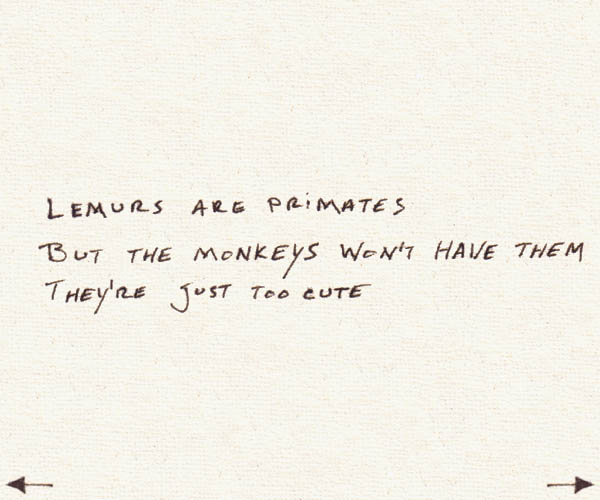 Lemurs are primates
But the monkeys won't have them
They're just too cute